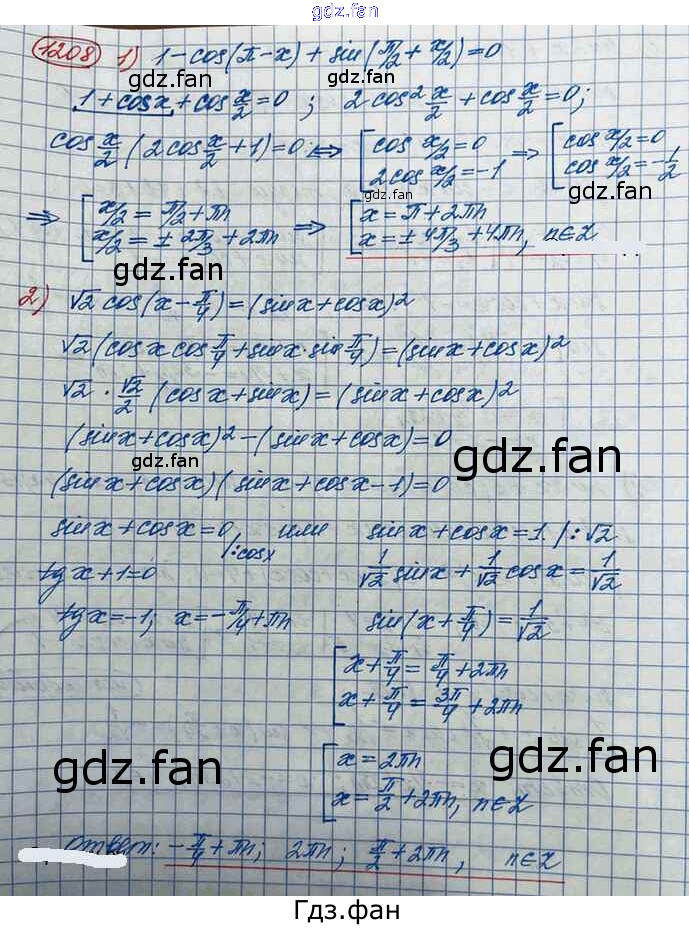 gdz.fan
1208 1) 1-cos(π-x)+sin(π/2+x/2)=0
gdz.fan gdz.fan
1+cosx+cos x/2=0 ; 2cos² x/2+cos x/2=0;
cos x/2(2cos x/2+1)=0 ⟺ [cos x/2=0 ⇒ [cos x/2=0
2cos x/2=-1 cos x/2=-1/2
gdz.fan gdz.fan
⇒ [x/2=π/2+πn ⇒ [x=π+2πn
x/2=±2π/3+2πn x=±4π/3+4πn, n∈Z
gdz.fan
2) √2 cos(x-π/4)=(sinx+cosx)²
√2(cosx cos π/4+sinx·sin π/4)=(sinx+cosx)²
√2·√2/2(cosx+sinx)=(sinx+cosx)²
(sinx+cosx)²-(sinx+cosx)=0
gdz.fan gdz.fan
(sinx+cosx)(sinx+cosx-1)=0
sinx+cosx=0 |:cosx или sinx+cosx=1. |:√2
tgx+1=0 1/√2 sinx+1/√2 cosx=1/√2
tgx=-1; x=-π/4+πn sin(x+π/4)=1/√2
[x+π/4=π/4+2πn
x+π/4=3π/4+2πn
gdz.fan gdz.fan
[x=2πn
x=π/2+2πn, n∈Z
Ответ: -π/4+πn; 2πn; π/2+2πn, n∈Z
Гдз.фан